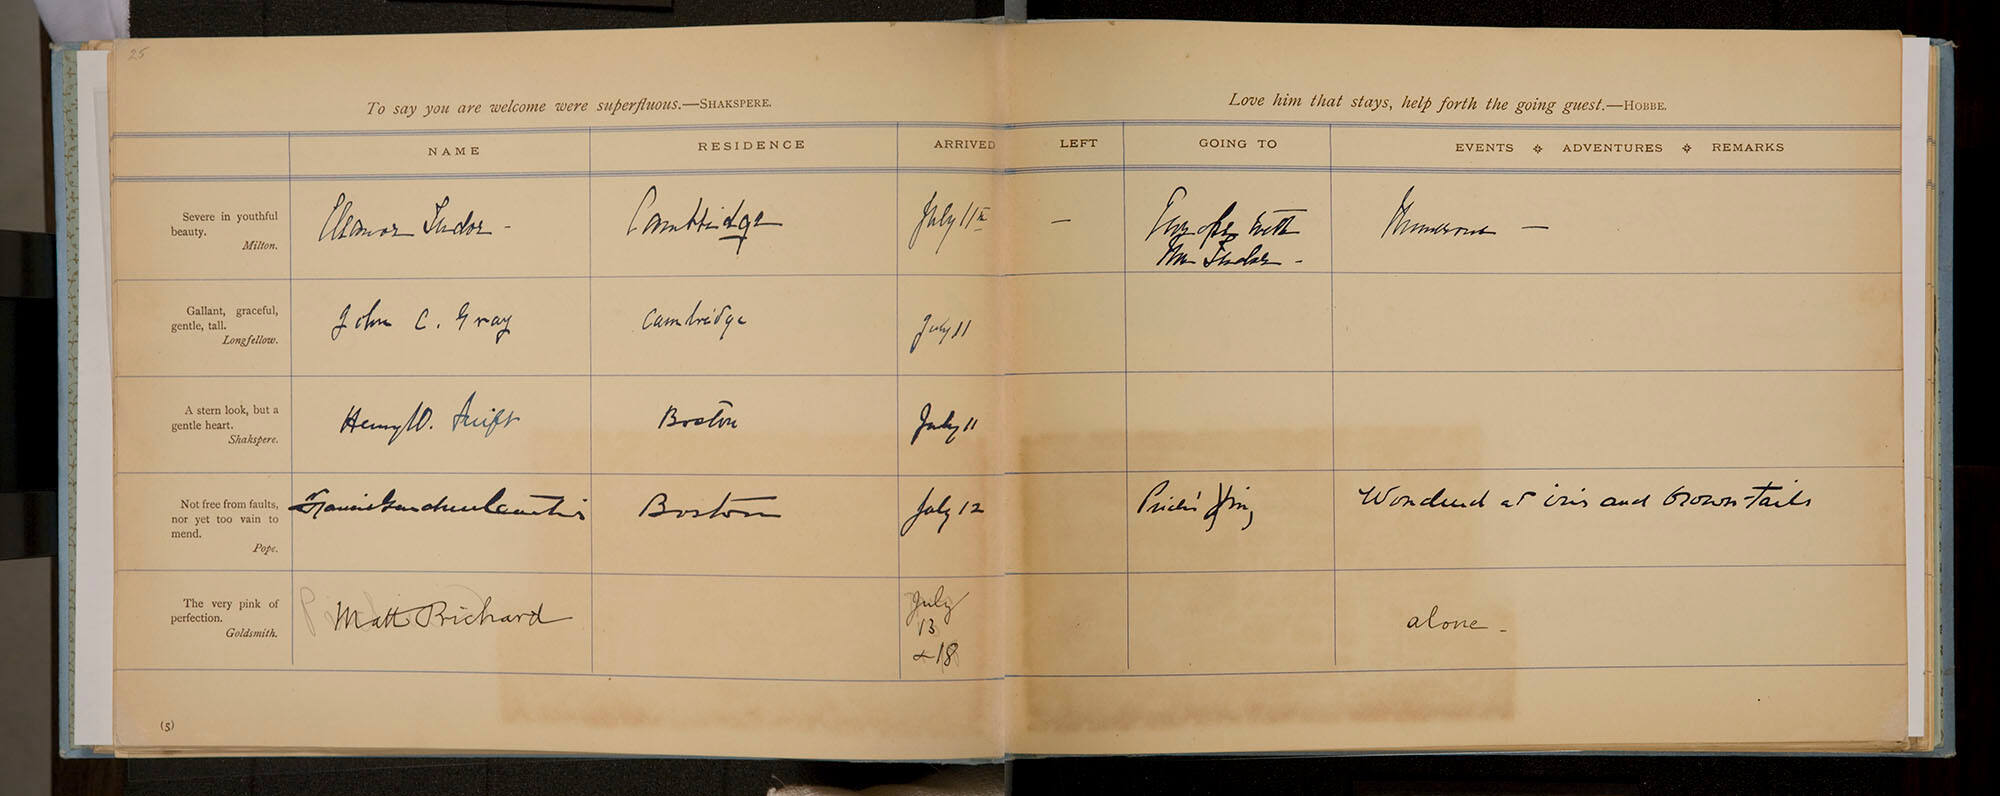 25
To say you are welcome were superfluous.—SHAKSPERE.
Love him that stays, help forth the going guest.—HOBBE.
NAME RESIDENCE ARRIVED LEFT GOING TO EVENTS ADVENTURES REMARKS
Severe in youthful
beauty.
Milton.
Eleanor Tudor -
Cambridge
July 11th
—
Tudor -
Numerous —
Gallant, graceful,
gentle, tall.
Longfellow.
John C. Gray
Cambridge
July 11
A stern look, but a
gentle heart.
Shakspere.
Henry W. Swift
Boston
July 11
Not free from faults,
nor yet too vain to
mend.
Pope.
Boston
July 12
Pride's
Wondered at iris and brown-tails
The very pink of
perfection.
Goldsmith.
Matt Prichard
July
13
+18
alone -
(5)